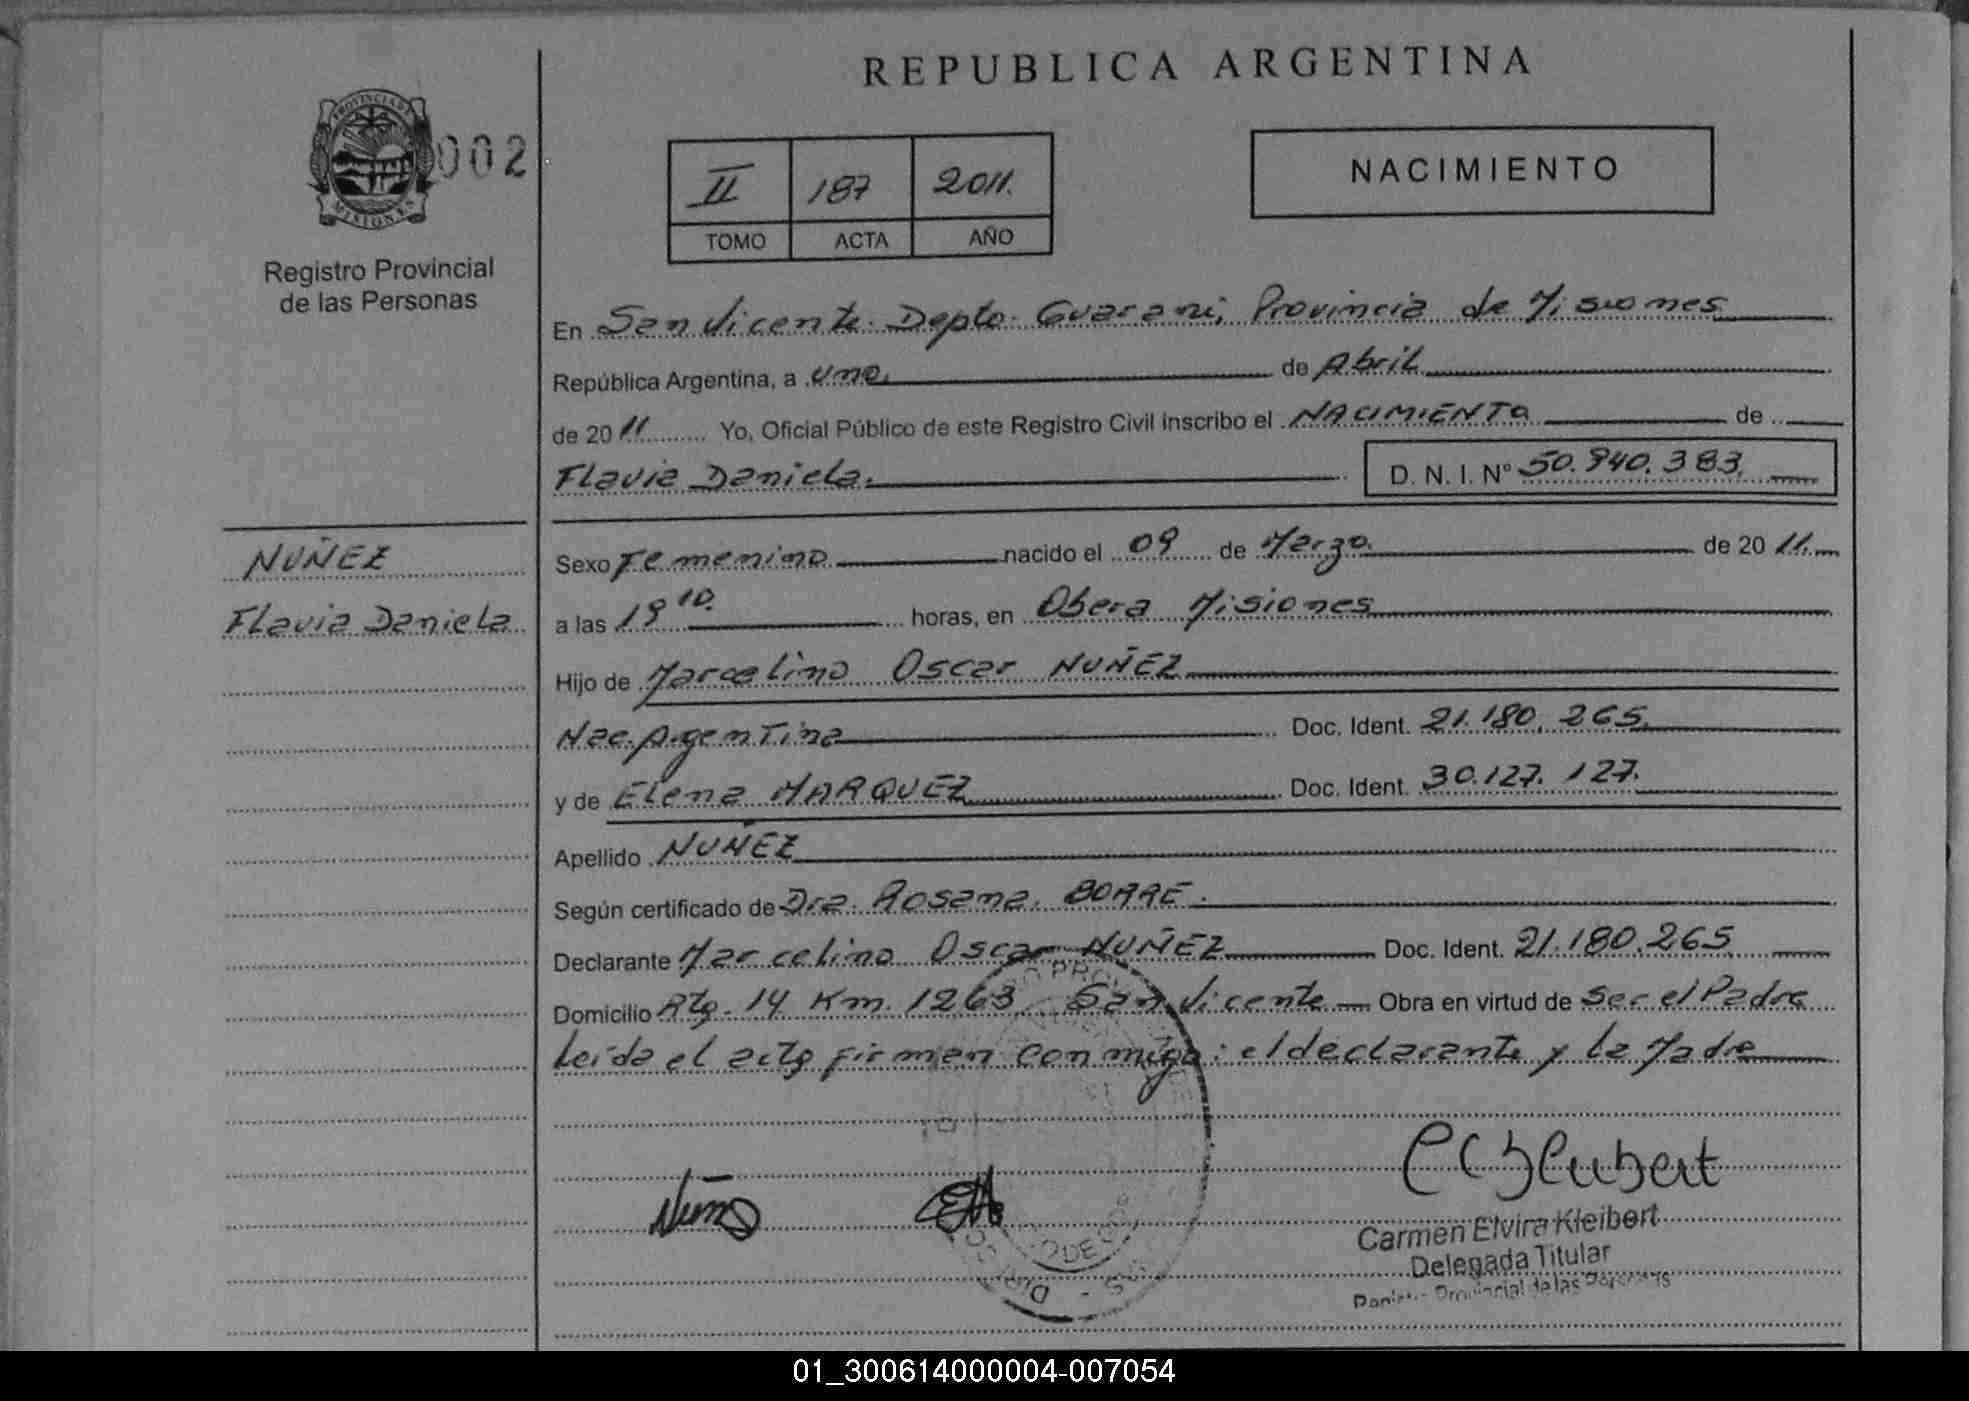 REPUBLICA ARGENTINA
PROVINCIA DE
MISIONES
002
Registro Provincial
de las Personas
II 187 2011.
TOMO ACTA AÑO
NACIMIENTO
En San Vicente. Depto. Guarani, Provincia de Misiones
República Argentina, a uno, de Abril
de 2011 Yo, Oficial Público de este Registro Civil inscribo el NACIMIENTO de
Flavia Daniela. D. N. I. Nº 50.940.383,
NUÑEZ
Flavia Daniela
Sexo Femenino nacido el 09 de Marzo. de 2011.
a las 19 10. horas, en Obera Misiones
Hijo de Marcelino Oscar NUÑEZ
Nac. Argentina Doc. Ident. 21.180.265,
y de Elena MARQUEZ Doc. Ident. 30.127.127.
Apellido NUÑEZ
Según certificado de Dra. Rosana. BORRE.
Declarante Marcelino Oscar NUÑEZ Doc. Ident. 21.180.265
Domicilio Rta. 14 Km. 1263 San Vicente Obra en virtud de Ser el Padre
Leida el acta firman conmigo: el declarante y la Madre
Carmen Elvira Kleibert
Delegada Titular
Provincial de las
01_300614000004-007054